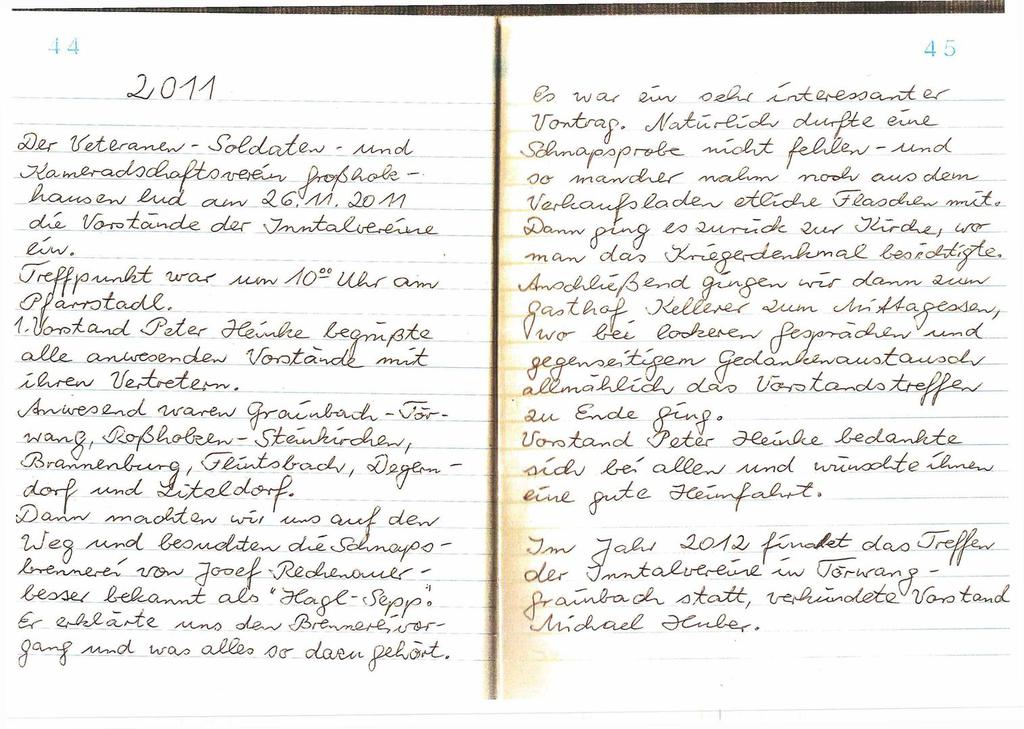 44
2011
Der Veteranen - Soldaten - und
Kameradschaftsverein Großholz-
hausen lud am 26.11.2011
die Vorstände der Inntalvereine
ein.
Treffpunkt war um 10⁰⁰ Uhr am
Pfarrstadl.
1. Vorstand Peter Heinke begrüßte
alle anwesenden Vorstände mit
ihren Vertretern.
Anwesend waren Grainbach - Tör-
wang, Roßholzen - Steinkirchen,
Brannenburg, Flintsbach, Degern-
dorf und Litzldorf.
Dann machten wir uns auf den
Weg und besuchten die Schnaps-
brennerei von Josef Rechenauer -
besser bekannt als "Hagl-Sepp".
Er erklärte uns den Brennereivor-
gang und was alles so dazu gehört.
45
Es war ein sehr interessanter
Vortrag. Natürlich durfte eine
Schnapsprobe nicht fehlen - und
so mancher nahm noch aus dem
Verkaufsladen etliche Flaschen mit.
Dann ging es zurück zur Kirche, wo
man das Kriegerdenkmal besichtigte.
Anschließend gingen wir dann zum
Gasthof Kellerer zum Mittagessen,
wo bei lockeren Gesprächen und
gegenseitigem Gedankenaustausch
allmählich das Vorstandstreffen
zu Ende ging.
Vorstand Peter Heinke bedankte
sich bei allen und wünschte ihnen
eine gute Heimfahrt.
Im Jahr 2012 findet das Treffen
der Inntalvereine in Törwang -
Grainbach statt, verkündete Vorstand
Michael Huber.